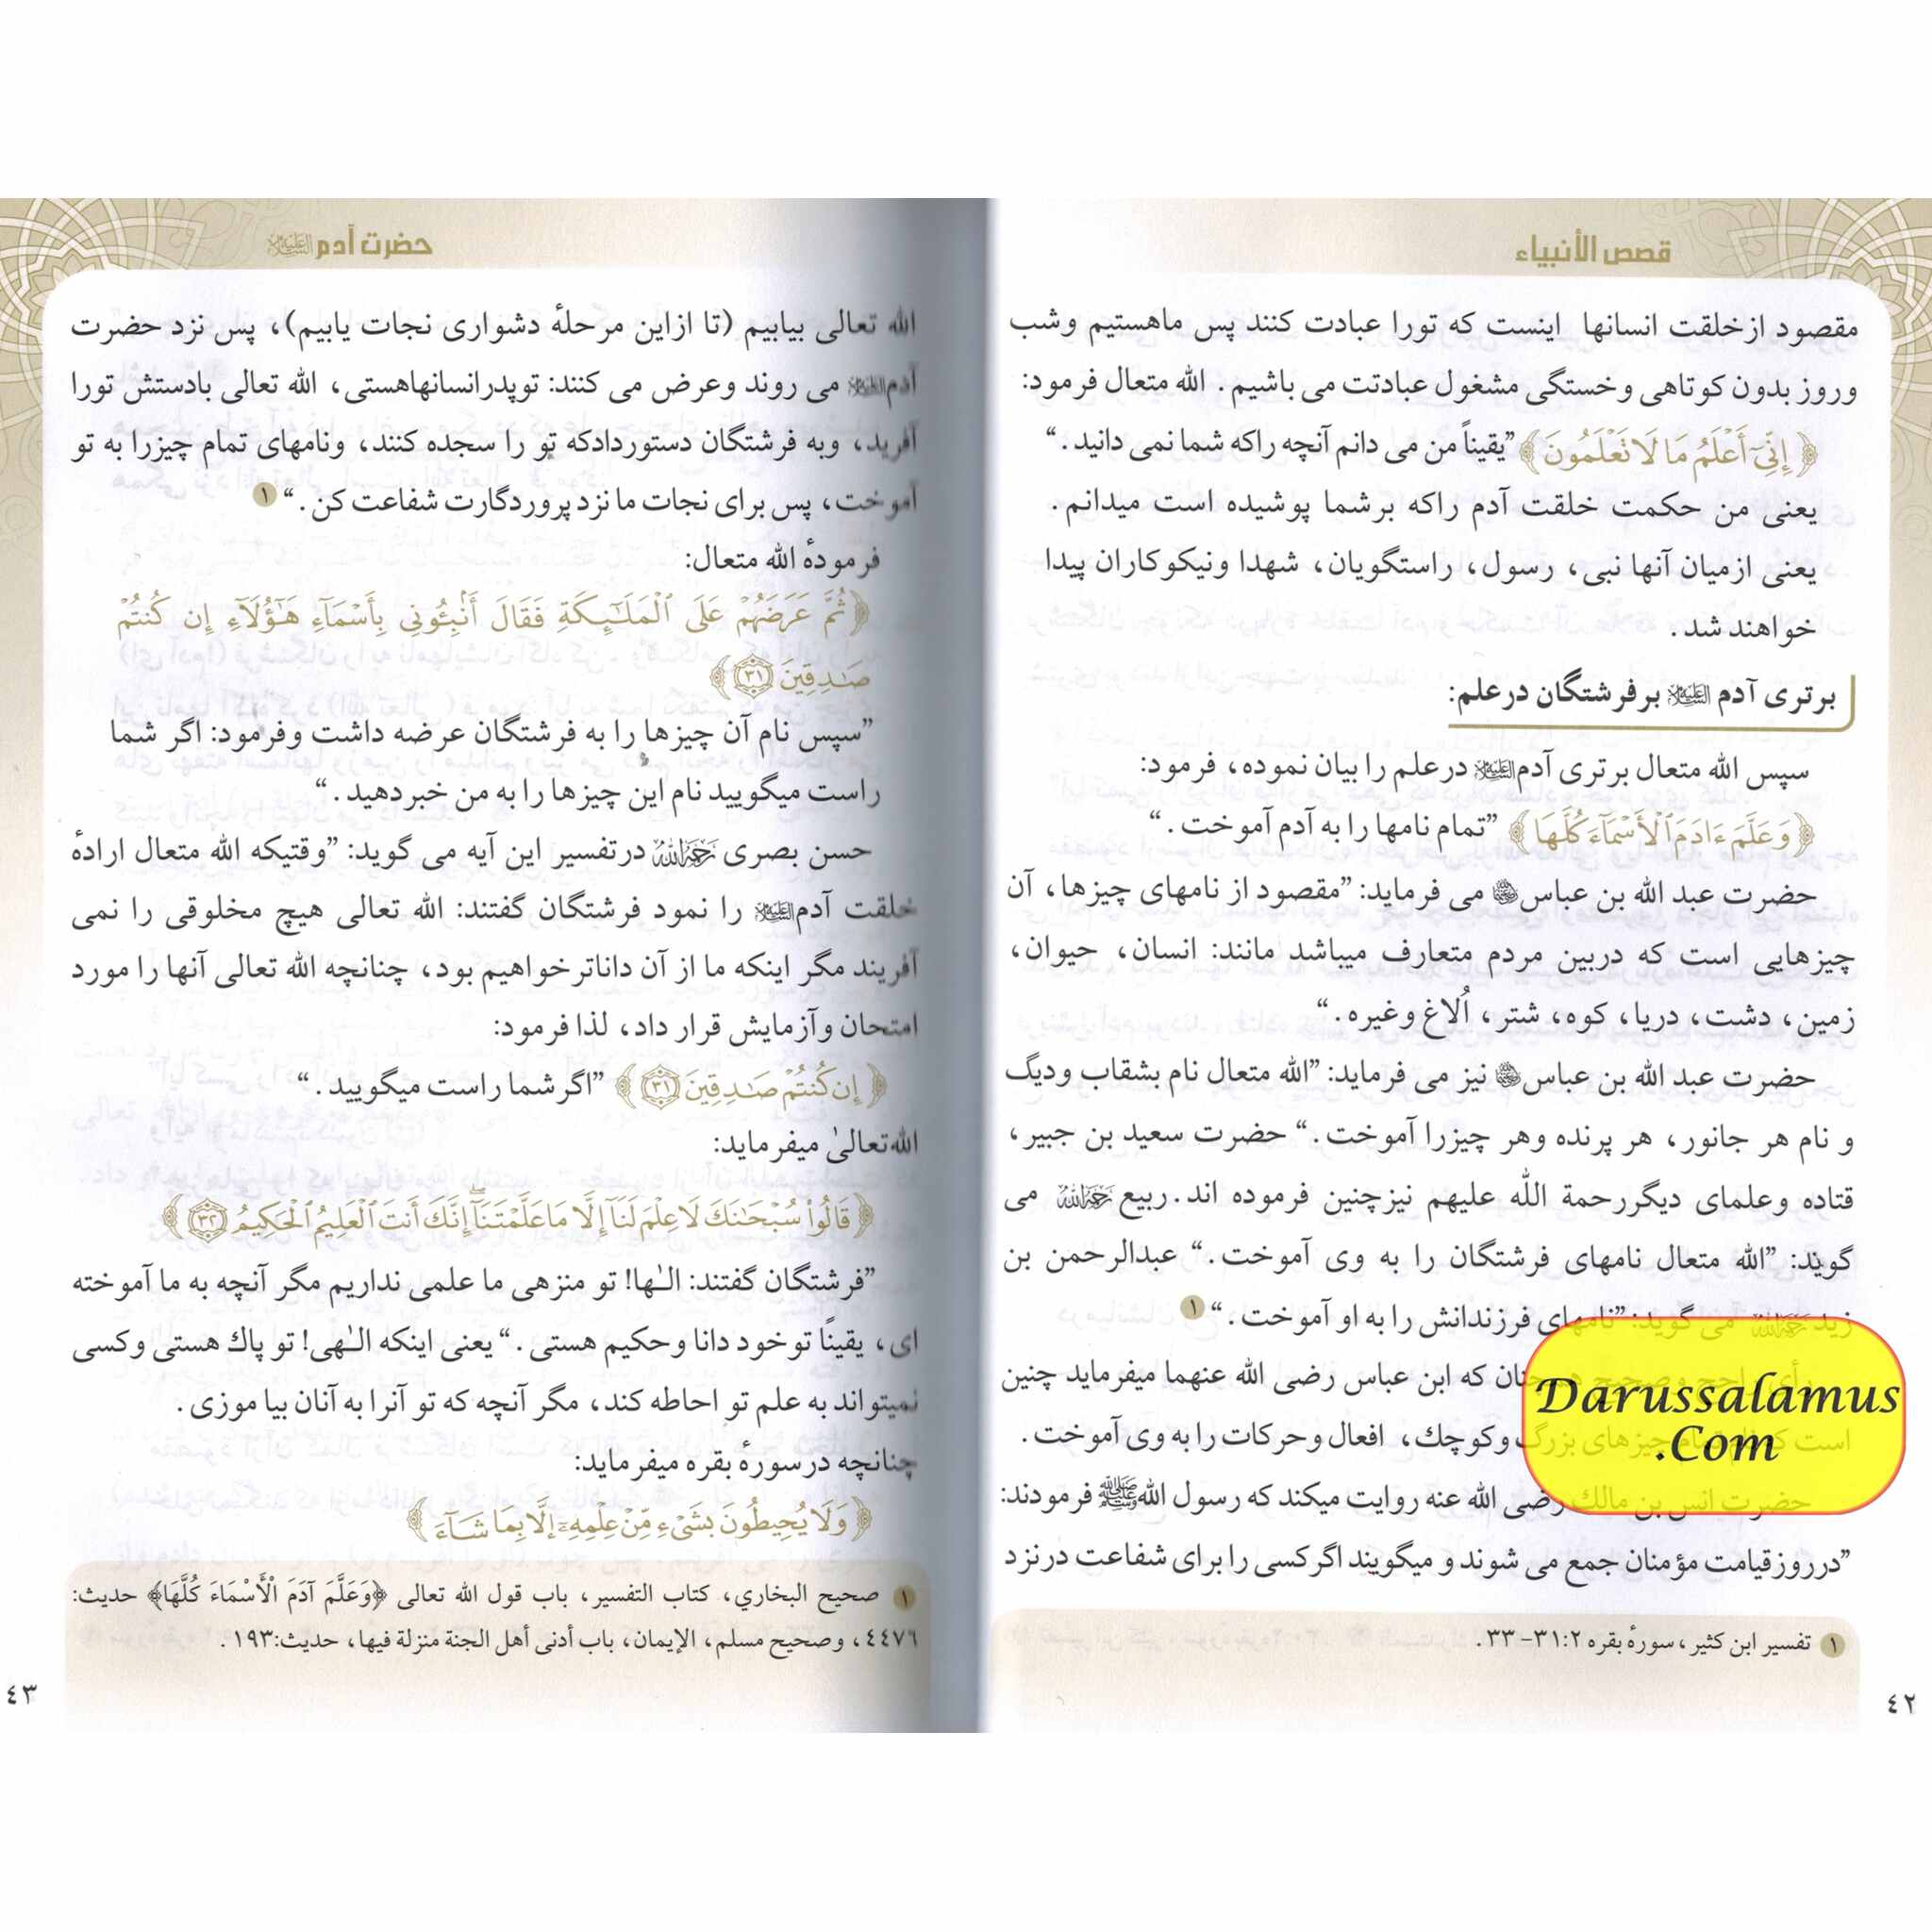 قصص الأنبياء
مقصود ازخلقت انسانها اینست که تورا عبادت کنند پس ماهستیم وشب
وروز بدون کوتاهی وخستگی مشغول عبادتت می باشیم. الله متعال فرمود:
﴿إِنِّي أَعْلَمُ مَا لَا تَعْلَمُونَ﴾ ”یقیناً من می دانم آنچه راکه شما نمی دانید.“
یعنی من حکمت خلقت آدم راکه برشما پوشیده است میدانم.
یعنی ازمیان آنها نبی، رسول، راستگویان، شهدا ونیکوکاران پیدا
خواهند شد.
برتری آدم علیه السلام برفرشتگان درعلم:
سپس الله متعال برتری آدم علیه السلام درعلم را بیان نموده، فرمود:
﴿وَعَلَّمَ ءَادَمَ ٱلْأَسْمَآءَ كُلَّهَا﴾ ”تمام نامها را به آدم آموخت.“
حضرت عبد الله بن عباس می فرماید: ”مقصود از نامهای چیزها، آن
چیزهایی است که دربین مردم متعارف میباشد مانند: انسان، حیوان،
زمین، دشت، دریا، کوه، شتر، اُلاغ وغیره.“
حضرت عبد الله بن عباس نیز می فرماید: ”الله متعال نام بشقاب ودیگ
و نام هر جانور، هر پرنده وهر چیزرا آموخت.“ حضرت سعید بن جبیر،
قتاده وعلمای دیگررحمة الله علیهم نیزچنین فرموده اند. ربیع رحمه الله می
گوید: ”الله متعال نامهای فرشتگان را به وی آموخت.“ عبدالرحمن بن
زید رحمه الله می گوید: ”نامهای فرزندانش را به او آموخت.“ ١
رأی راجح وصحیح که ابن عباس رضی الله عنهما میفرماید چنین
است وکوچك، افعال وحرکات را به وی آموخت.
حضرت انس بن مالك رضی الله عنه روایت میکند که رسول الله ﷺ فرمودند:
”درروزقیامت مؤمنان جمع می شوند و میگویند اگرکسی را برای شفاعت درنزد
١ تفسیر ابن کثیر، سورۀ بقره ٢:٣١-٣٣.
٤٢
Darussalamus
.Com
حضرت آدم علیه السلام
الله تعالی بیابیم (تا ازاین مرحلۀ دشواری نجات یابیم)، پس نزد حضرت
آدم علیه السلام می روند وعرض می کنند: توپدرانسانهاهستی، الله تعالی بادستش تورا
آفرید، وبه فرشتگان دستوردادکه تو را سجده کنند، ونامهای تمام چیزرا به تو
آموخت، پس برای نجات ما نزد پروردگارت شفاعت کن.“ ١
فرمودۀ الله متعال:
﴿ثُمَّ عَرَضَهُمْ عَلَى ٱلْمَلَٰٓئِكَةِ فَقَالَ أَنۢبِـُٔونِي بِأَسْمَآءِ هَٰٓؤُلَآءِ إِن كُنتُمْ
صَٰدِقِينَ ٣١﴾
”سپس نام آن چیزها را به فرشتگان عرضه داشت وفرمود: اگر شما
راست میگویید نام این چیزها را به من خبردهید.“
حسن بصری رحمه الله درتفسیر این آیه می گوید: ”وقتیکه الله متعال ارادۀ
خلقت آدم علیه السلام را نمود فرشتگان گفتند: الله تعالی هیچ مخلوقی را نمی
آفریند مگر اینکه ما از آن داناترخواهیم بود، چنانچه الله تعالی آنها را مورد
امتحان وآزمایش قرار داد، لذا فرمود:
﴿إِن كُنتُمْ صَٰدِقِينَ ٣١﴾ ”اگرشما راست میگویید.“
الله تعالیٰ میفرماید:
﴿قَالُوا۟ سُبْحَٰنَكَ لَا عِلْمَ لَنَآ إِلَّا مَا عَلَّمْتَنَآ ۖ إِنَّكَ أَنتَ ٱلْعَلِيمُ ٱلْحَكِيمُ ٣٢﴾
”فرشتگان گفتند: الـٰها! تو منزهی ما علمی نداریم مگر آنچه به ما آموخته
ای، یقیناً توخود دانا وحکیم هستی.“ یعنی اینکه الـٰهی! تو پاك هستی وکسی
نمیتواند به علم تو احاطه کند، مگر آنچه که تو آنرا به آنان بیا موزی.
چنانچه درسورۀ بقره میفرماید:
﴿وَلَا يُحِيطُونَ بِشَىْءٍ مِّنْ عِلْمِهِۦٓ إِلَّا بِمَا شَآءَ﴾
١ صحیح البخاري، کتاب التفسیر، باب قول الله تعالی ﴿وَعَلَّمَ آدَمَ الْأَسْمَاءَ كُلَّهَا﴾ حدیث:
٤٤٧٦، وصحیح مسلم، الإیمان، باب أدنی أهل الجنة منزلة فیها، حدیث:١٩٣.
٤٣